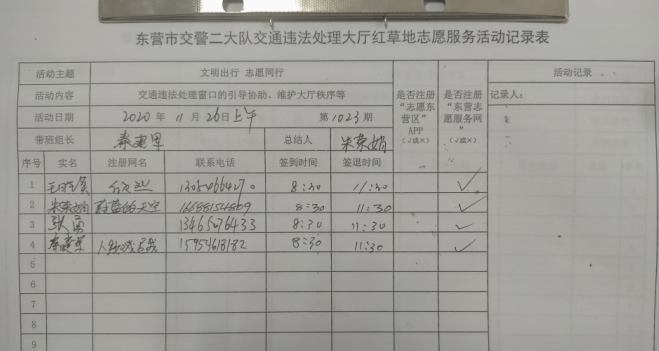 东营市交警二大队交通违法处理大厅红草地志愿服务活动记录表
活动主题 文明出行 志愿同行 是否注册“志愿东营区”APP（√或×） 是否注册“东营志愿服务网”（√或×） 活动记录
活动内容 交通违法处理窗口的引导协助、维护大厅秩序等 记录人：
活动日期 2020 年 11 月 26日上午 第1023期
带班组长 秦建军 总结人 朱荣娟
序号 实名 注册网名 联系电话 签到时间 签退时间
1 8:30 11:30 √
2 朱荣娟 蔚蓝的天空 16688154809 8:30 11:30 √
3 张勇 13465276433 8:30 11:30 √
4 秦建军 15954618182 8:30 11:30 √
5
6
7
8
9